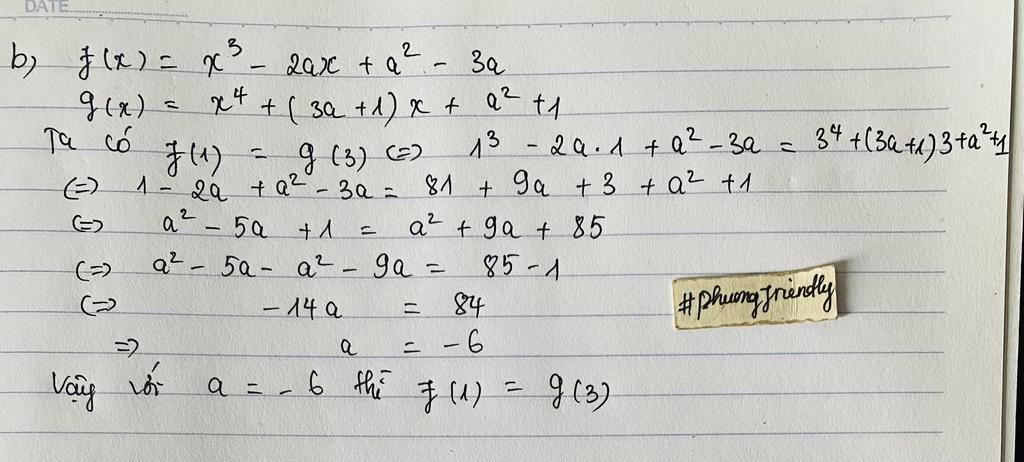 DATE
b, f(x) = x³ - 2ax + a² - 3a
g(x) = x⁴ + (3a+1)x + a² +1
Ta có f(1) = g(3) (=) 1³ - 2a.1 + a² - 3a = 3⁴+(3a+1)3+a²+1
(=) 1 - 2a + a² - 3a = 81 + 9a + 3 + a² +1
(=) a² - 5a +1 = a² + 9a + 85
(=) a² - 5a - a² - 9a = 85 - 1
(=) -14a = 84
=) a = -6
Vậy với a = -6 thì f(1) = g(3)
#phuongfriendly